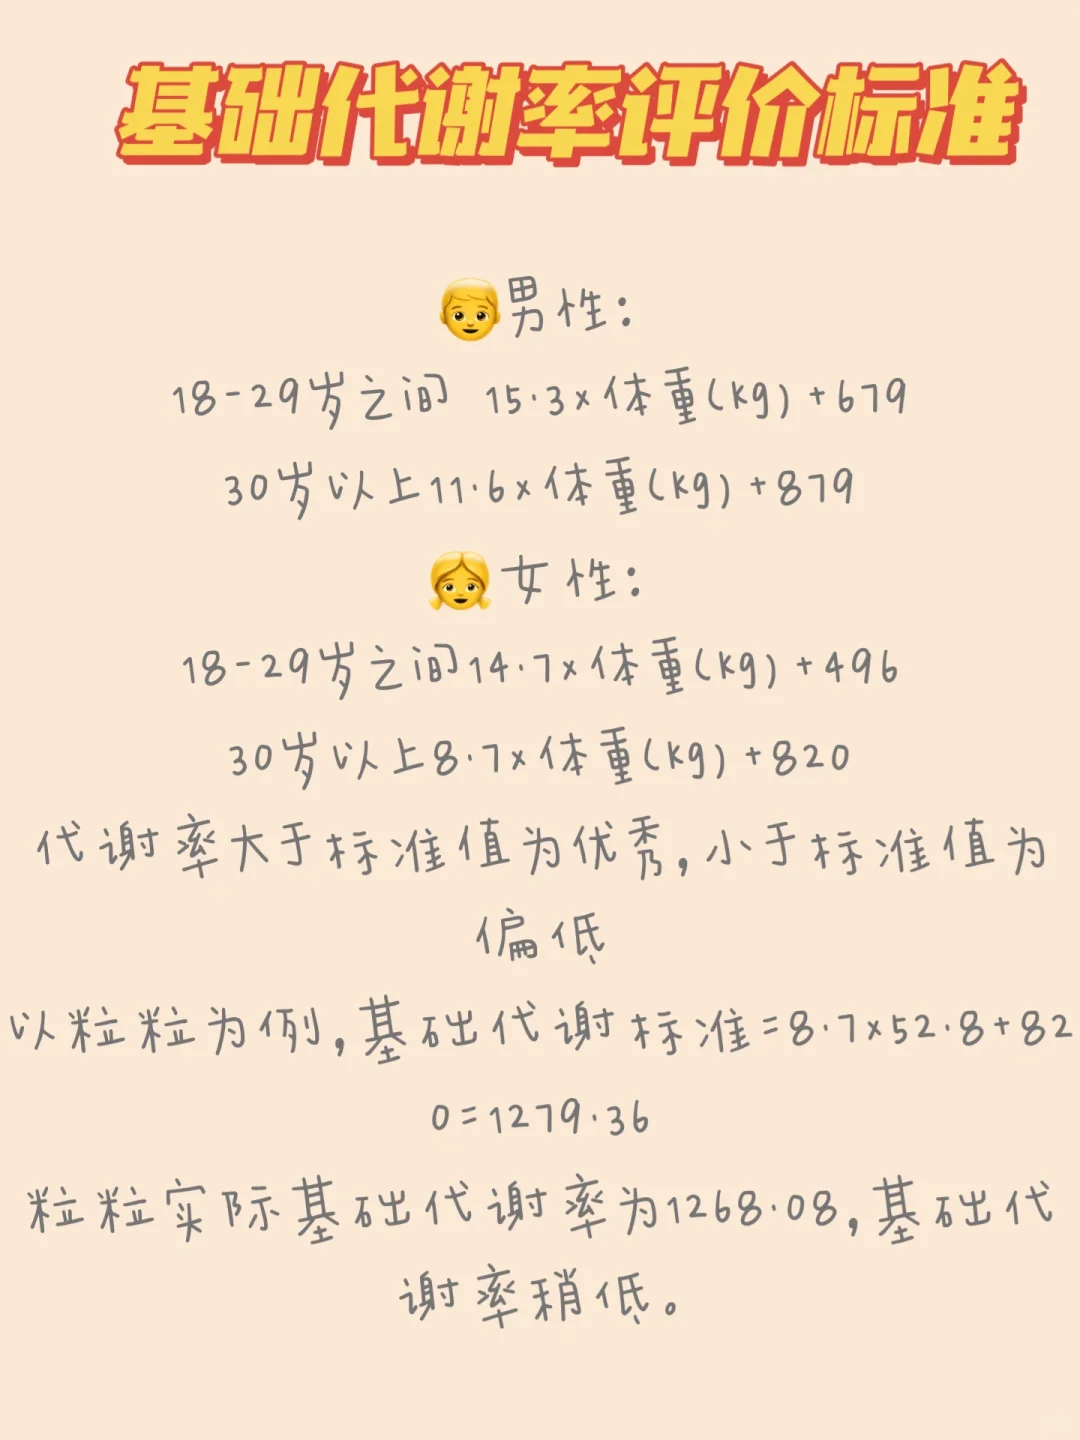 基础代谢率评价标准
男性:
18-29岁之间 15.3×体重(kg)+679
30岁以上11.6×体重(kg)+879
女性:
18-29岁之间14.7×体重(kg)+496
30岁以上8.7×体重(kg)+820
代谢率大于标准值为优秀,小于标准值为
偏低
以粒粒为例,基础代谢标准=8.7×52.8+82
0=1279.36
粒粒实际基础代谢率为1268.08,基础代
谢率稍低。